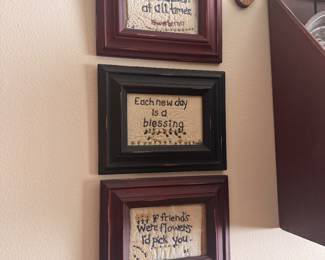 at all times
Each new day
is a
blessing
If friends
were flowers
I'd pick you